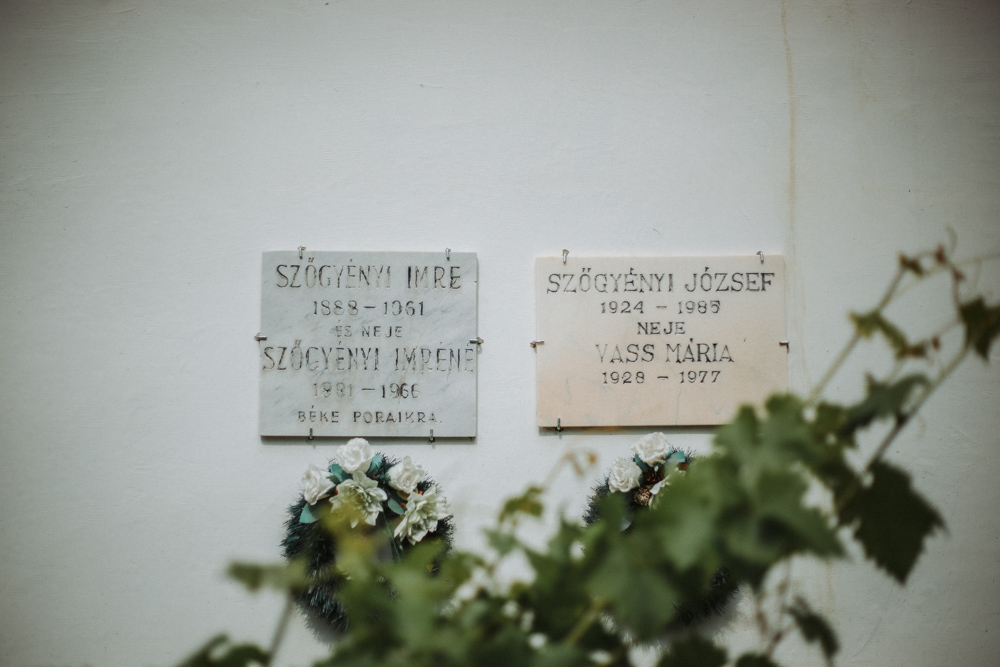 SZŐGYÉNYI IMRE
1888 – 1961
ÉS NEJE
SZŐGYÉNYI IMRÉNÉ
1891 – 1966
BÉKE PORAIKRA.
SZŐGYÉNYI JÓZSEF
1924 – 1985
NEJE
VASS MÁRIA
1928 – 1977